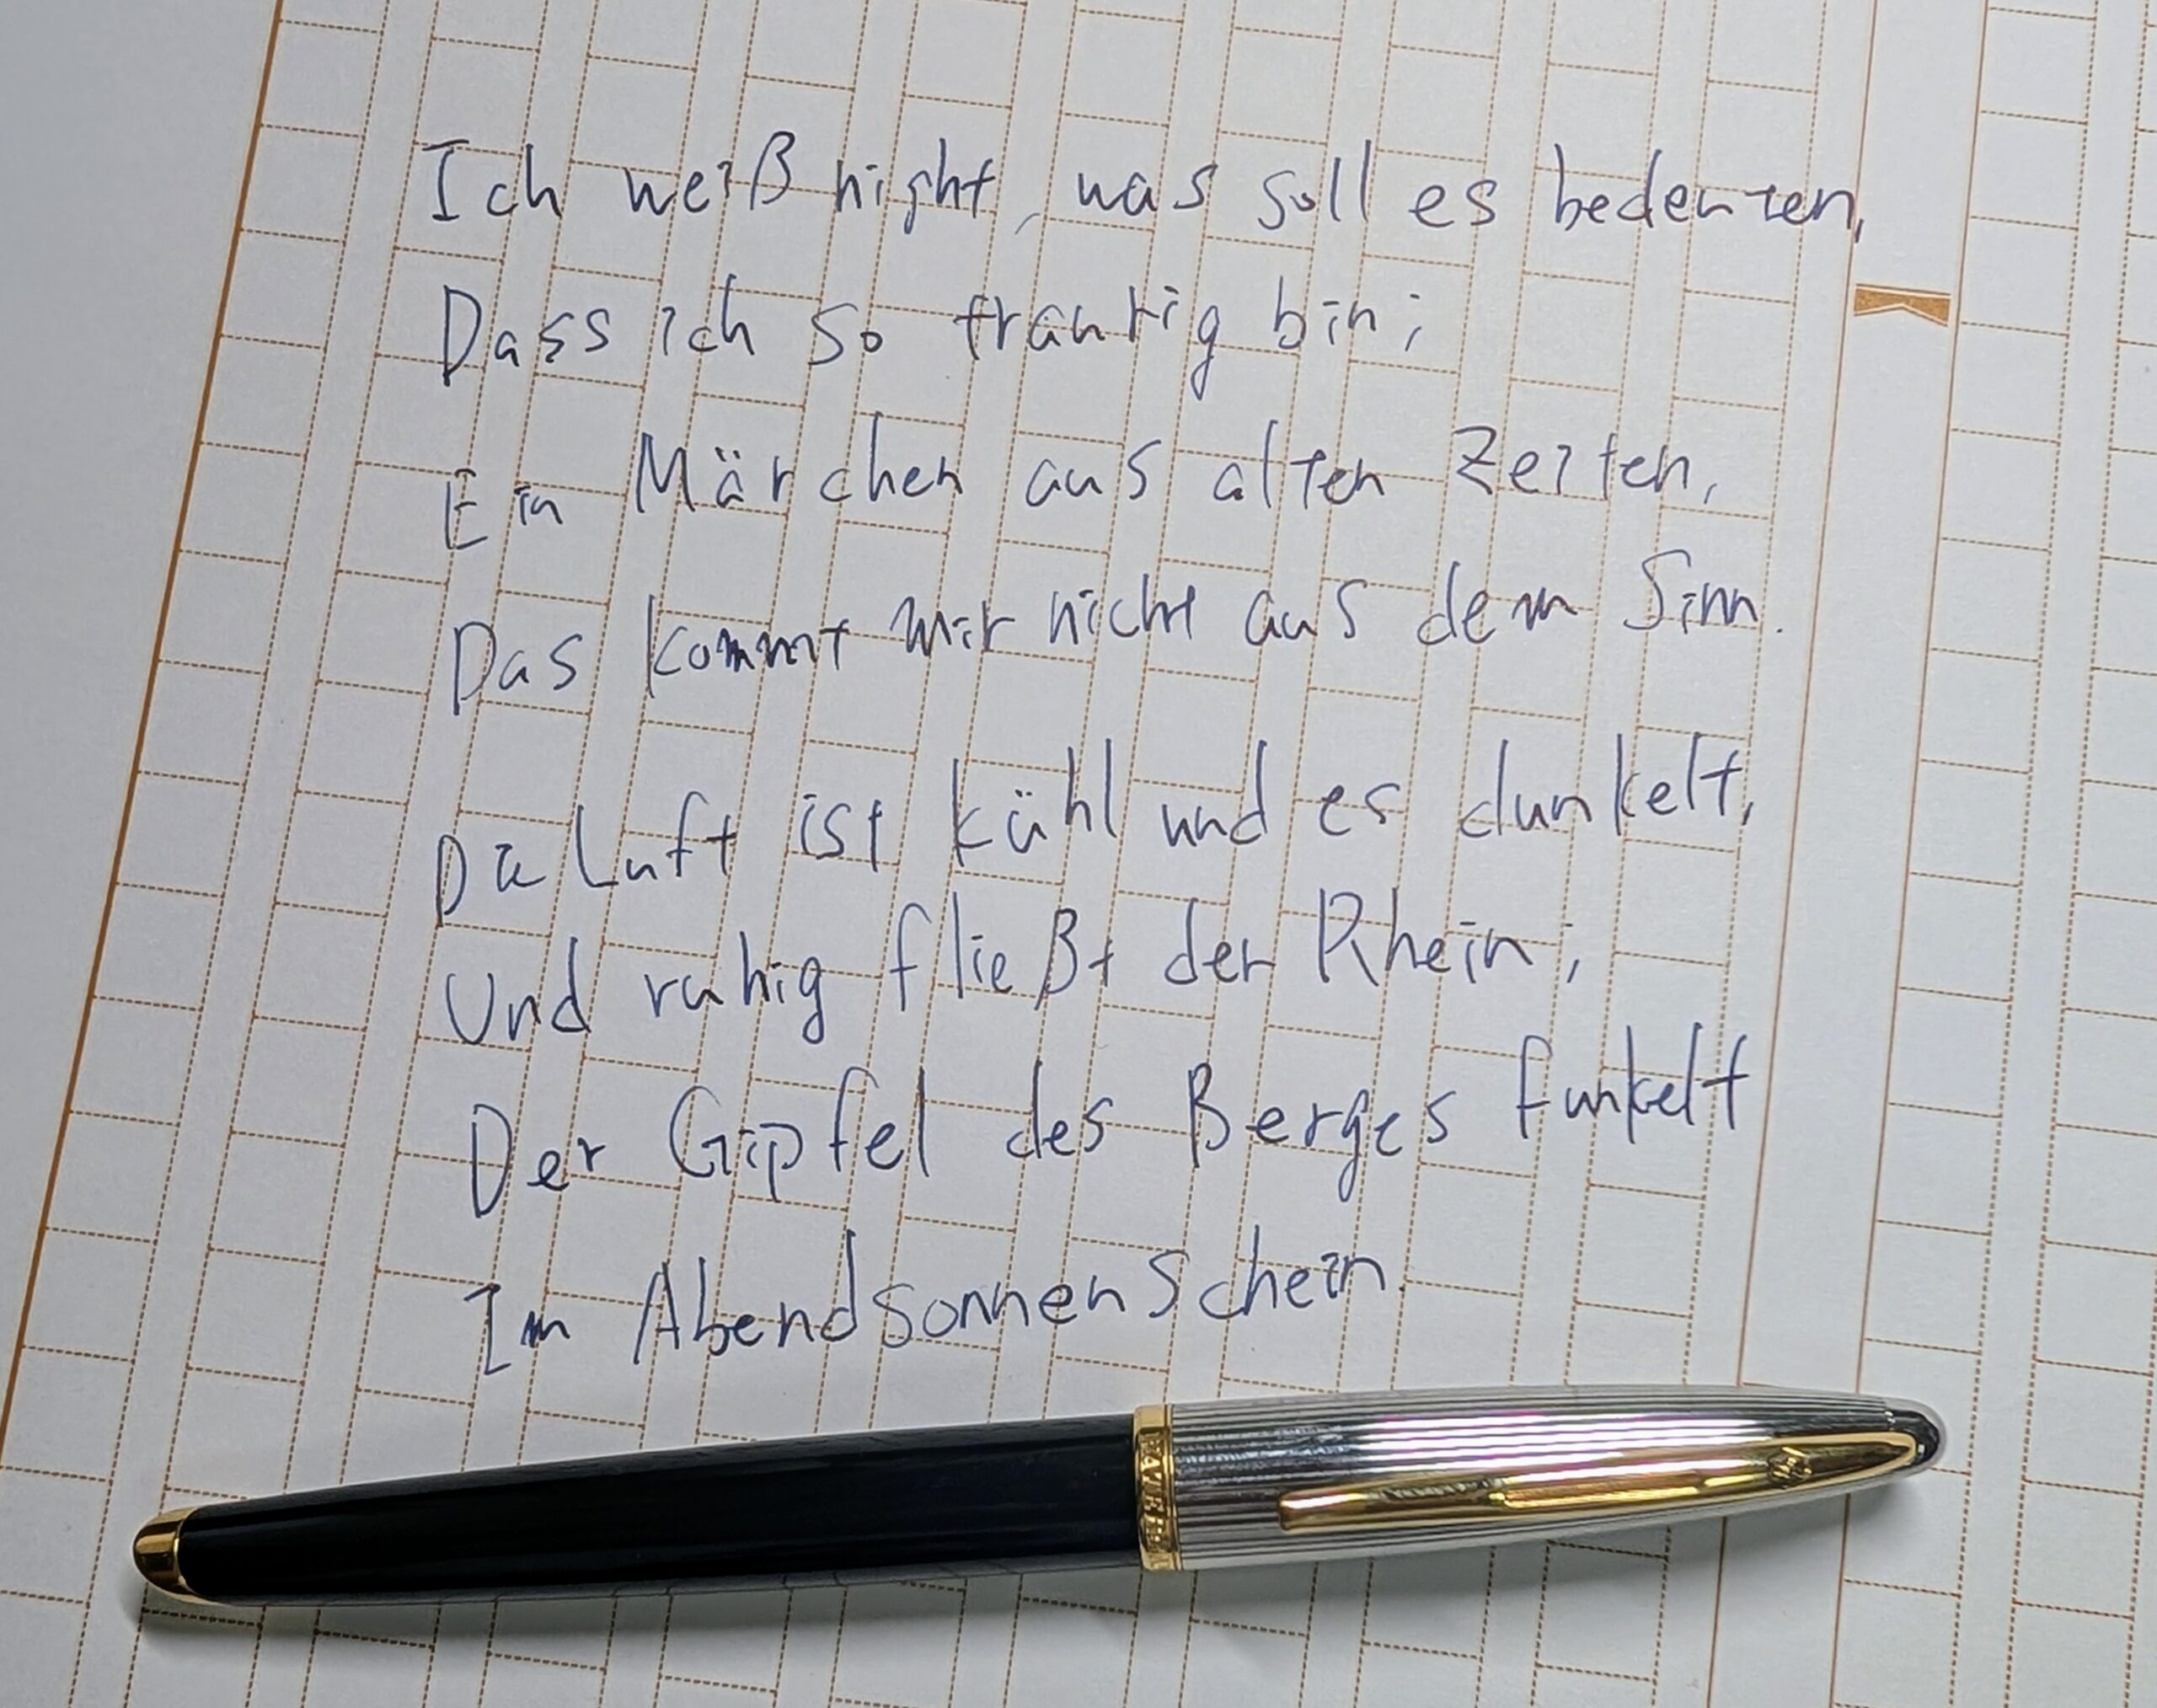 Ich weiß night, was soll es bedeuten,
Dass ich so traurig bin;
Ein Märchen aus alten Zeiten,
Das kommt mir nicht aus dem Sinn.
Die Luft ist kühl und es dunkelt,
Und ruhig fließt der Rhein;
Der Gipfel des Berges funkelt
Im Abendsonnenschein.
WATERMAN